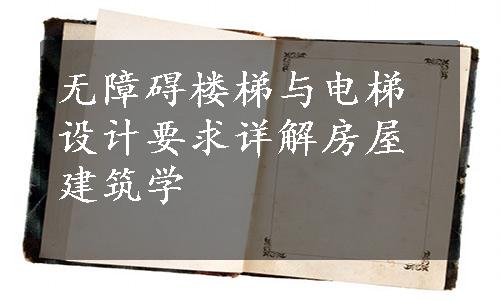 无障碍楼梯与电梯
设计要求详解房屋
建筑学